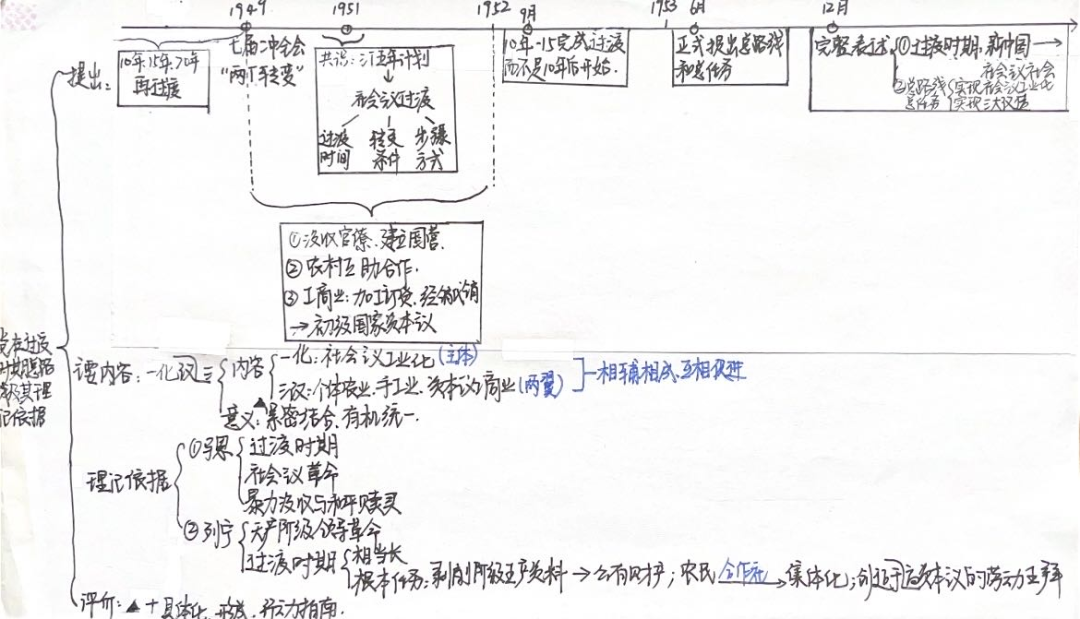 1949 1951 1952 9月 1953 6月 12月
提出：
10年、15年、20年
再过渡
七届二中全会
"两个转变"
共识：订五年计划
社会议过渡
过渡时间
转变条件
步骤方式
10年-15完成过渡
而不是10年后开始.
正式提出总路线
和总任务
完整表述
①过渡时期：新中国→
社会议社会
②总路线
总任务
实现社会议工业化
实现三大改造
①没收官僚、建立国营.
②农村互助合作.
③工商业：加工订货、经销代销
→初级国家资本议
过渡
时期总路
及其理
论依据
主要内容：一化三改
内容
一化：社会议工业化（主体）
三改：个体农业、手工业、资本议商业（两翼）
相辅相成、互相促进
▲意义：紧密结合、有机统一.
理论依据
①马恩
过渡时期
社会议革命
暴力没收与和平赎买
②列宁
无产阶级领导革命
过渡时期
相当长
根本任务：剥削阶级生产资料→公有财产；农民 合作社→集体化；创造高于资本议的劳动生产率
评价：▲+具体化、形成、行动指南.